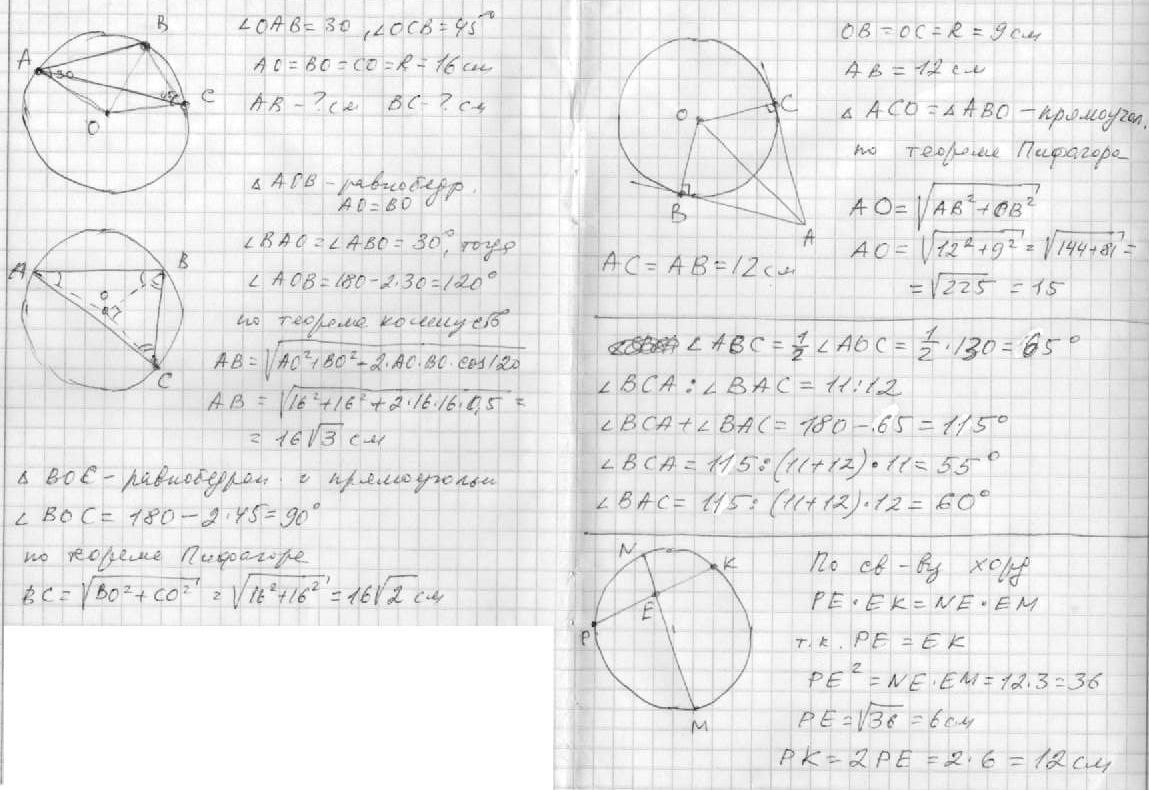 ∠OAB = 30, ∠OCB = 45°
AO = BO = CO = R = 16 см
AB - ? см BC - ? см
B
A
30
45°
C
O
△ AOB - равнобедр.
AO = BO
∠BAO = ∠ABO = 30°, тогда
∠AOB = 180 - 2·30 = 120°
по теореме косинусов
AB = √AO² + BO² - 2·AO·BO·cos120
AB = √16² + 16² + 2·16·16·0,5 =
= 16√3 см
A
B
O
C
△ BOC - равнобедрен. и прямоугольн
∠ BOC = 180 - 2·45 = 90°
по теореме Пифагора
BC = √BO² + CO² = √16² + 16² = 16√2 см
OB = OC = R = 9 см
AB = 12 см
△ ACO = △ ABO - прямоугол.
по теореме Пифагора
AO = √AB² + OB²
AO = √12² + 9² = √144 + 81 =
= √225 = 15
O
C
B
A
AC = AB = 12 см
∠ABC = 1/2 ∠AOC = 1/2 · 130 = 65°
∠BCA : ∠BAC = 11:12
∠BCA + ∠BAC = 180 - 65 = 115°
∠BCA = 115 : (11+12) · 11 = 55°
∠BAC = 115 : (11+12) · 12 = 60°
N
K
E
P
M
По св-ву хорд
PE · EK = NE · EM
т.к. PE = EK
PE² = NE · EM = 12·3 = 36
PE = √36 = 6 см
PK = 2PE = 2·6 = 12 см